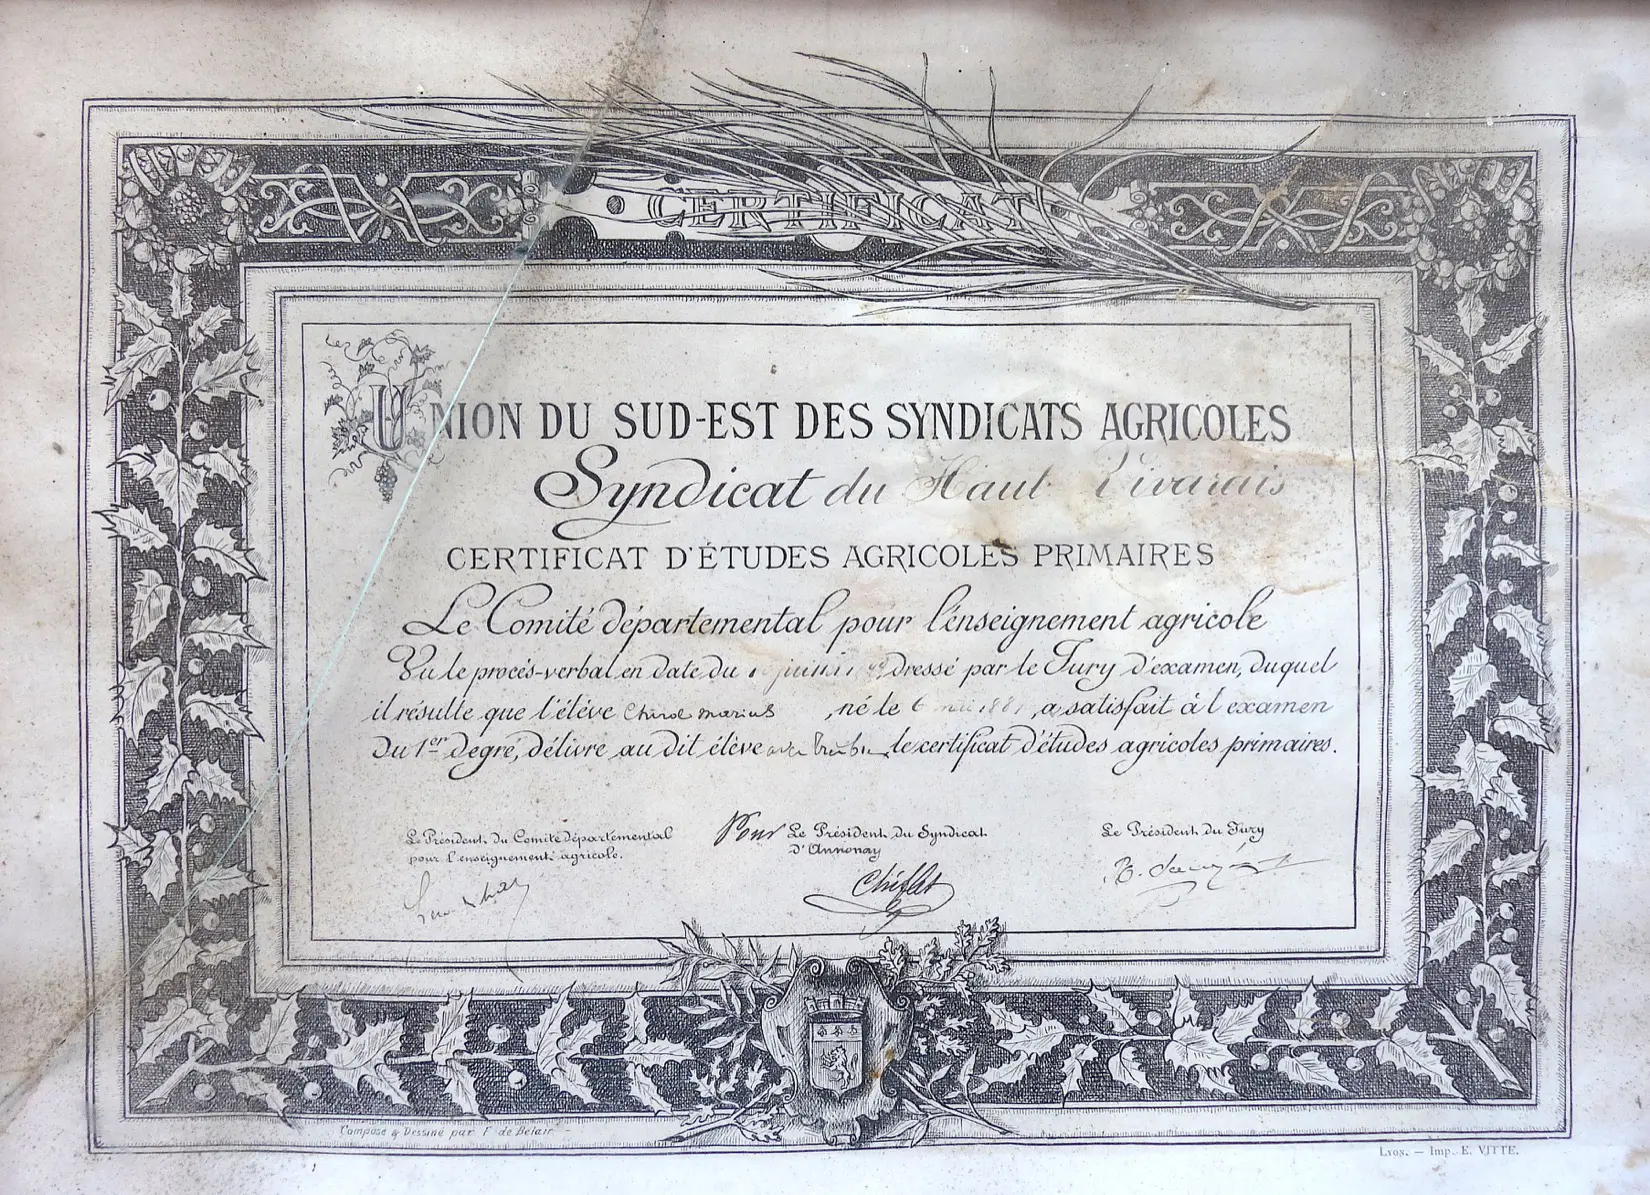 CERTIFICAT
UNION DU SUD-EST DES SYNDICATS AGRICOLES
Syndicat du Haut Vivarais
CERTIFICAT D'ÉTUDES AGRICOLES PRIMAIRES
Le Comité départemental pour l'énseignement agricole
Vu le procès-verbal en date du dressé par le Jury d'examen, duquel
il résulte que l'élève Marius , né le 6 , a satisfait à l'examen
du 1er degré, délivre au dit élève le certificat d'études agricoles primaires.
Le Président du Comité départemental
pour l'enseignement agricole.
Pour Le Président du Syndicat
d'Annonay
Le Président du Jury
Composé & Dessiné par F de Belair
Lyon. — Imp. E. VITTE.